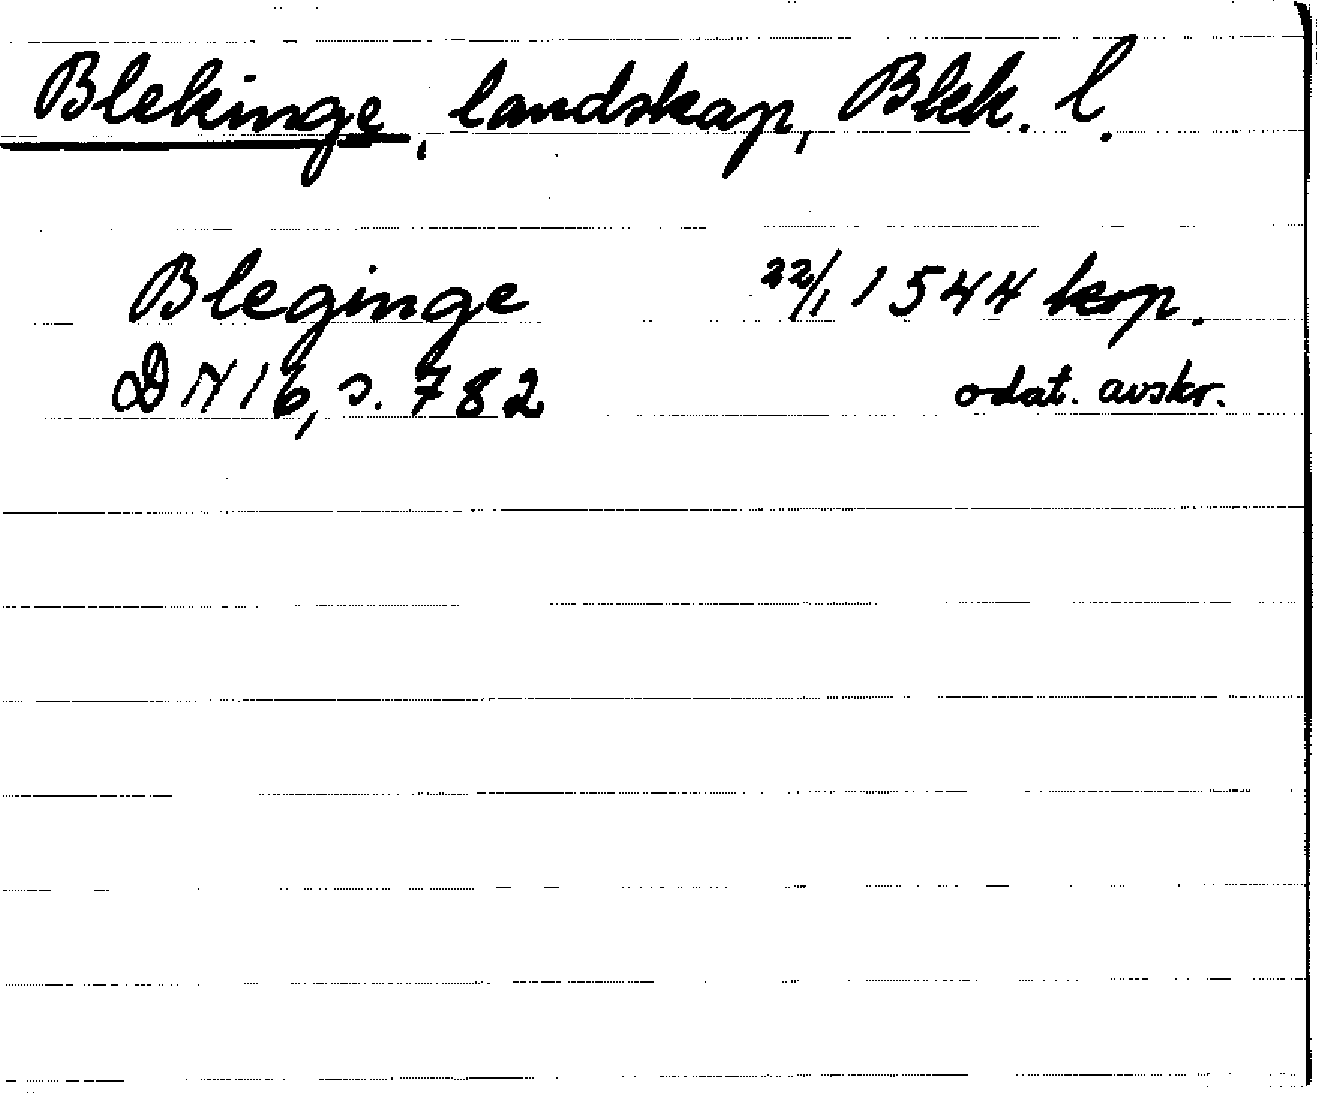 Blekinge, landskap, Blek. l.
Bleginge 22/1 1544 kop.
DN 16, s. 782 odat. avskr.